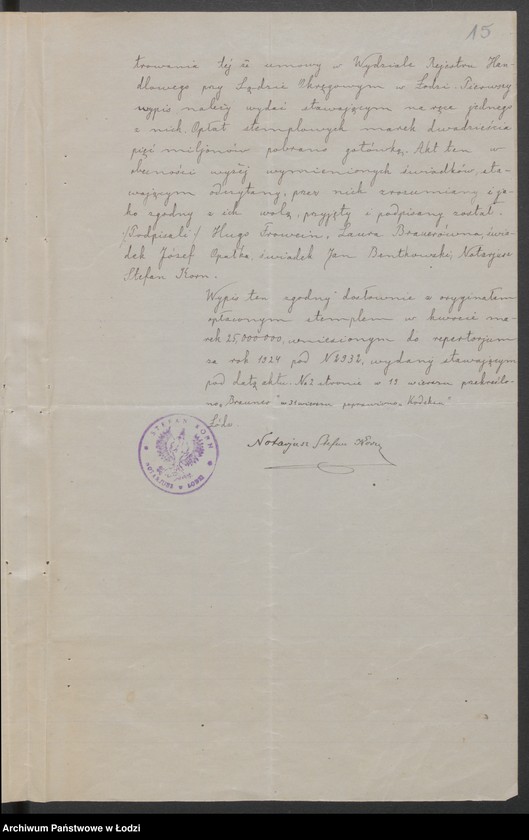 15
trowania tej że umowy w Wydziale Rejestru Han-
dlowego przy Sądzie Okręgowym w Łodzi. Pierwszy
wypis należy wydać stawającym na ręce jednego
z nich. Opłat stemplowych marek dwadzieścia
pięć miljonów pobrano gotówką. Akt ten w
obecności wyżej wymienionych świadków, sta-
wającym odczytany, przez nich zrozumiany i ja-
ko zgodny z ich wolą, przyjęty i podpisany został.
/Podpisali:/ Hugo Trowein, Laura Brauerówna, świa-
dek Józef Opałka, świadek Jan Bentkowski, Notarjusz
Stefan Korn.
Wypis ten zgodny dosłownie z oryginałem
opłaconym stemplem w kwocie ma-
rek 25,000.000, wniesionym do repertorjum
za rok 1924 pod № 932, wydany stawającym
pod datą aktu. Na 2 stronie w 19 wierszu przekreślo-
no „ " w 31 wierszu poprawiono „ "
Notarjusz Stefan Korn
STEFAN KORN
NOTARJUSZ
ŁÓDŹ
Archiwum Państwowe w Łodzi